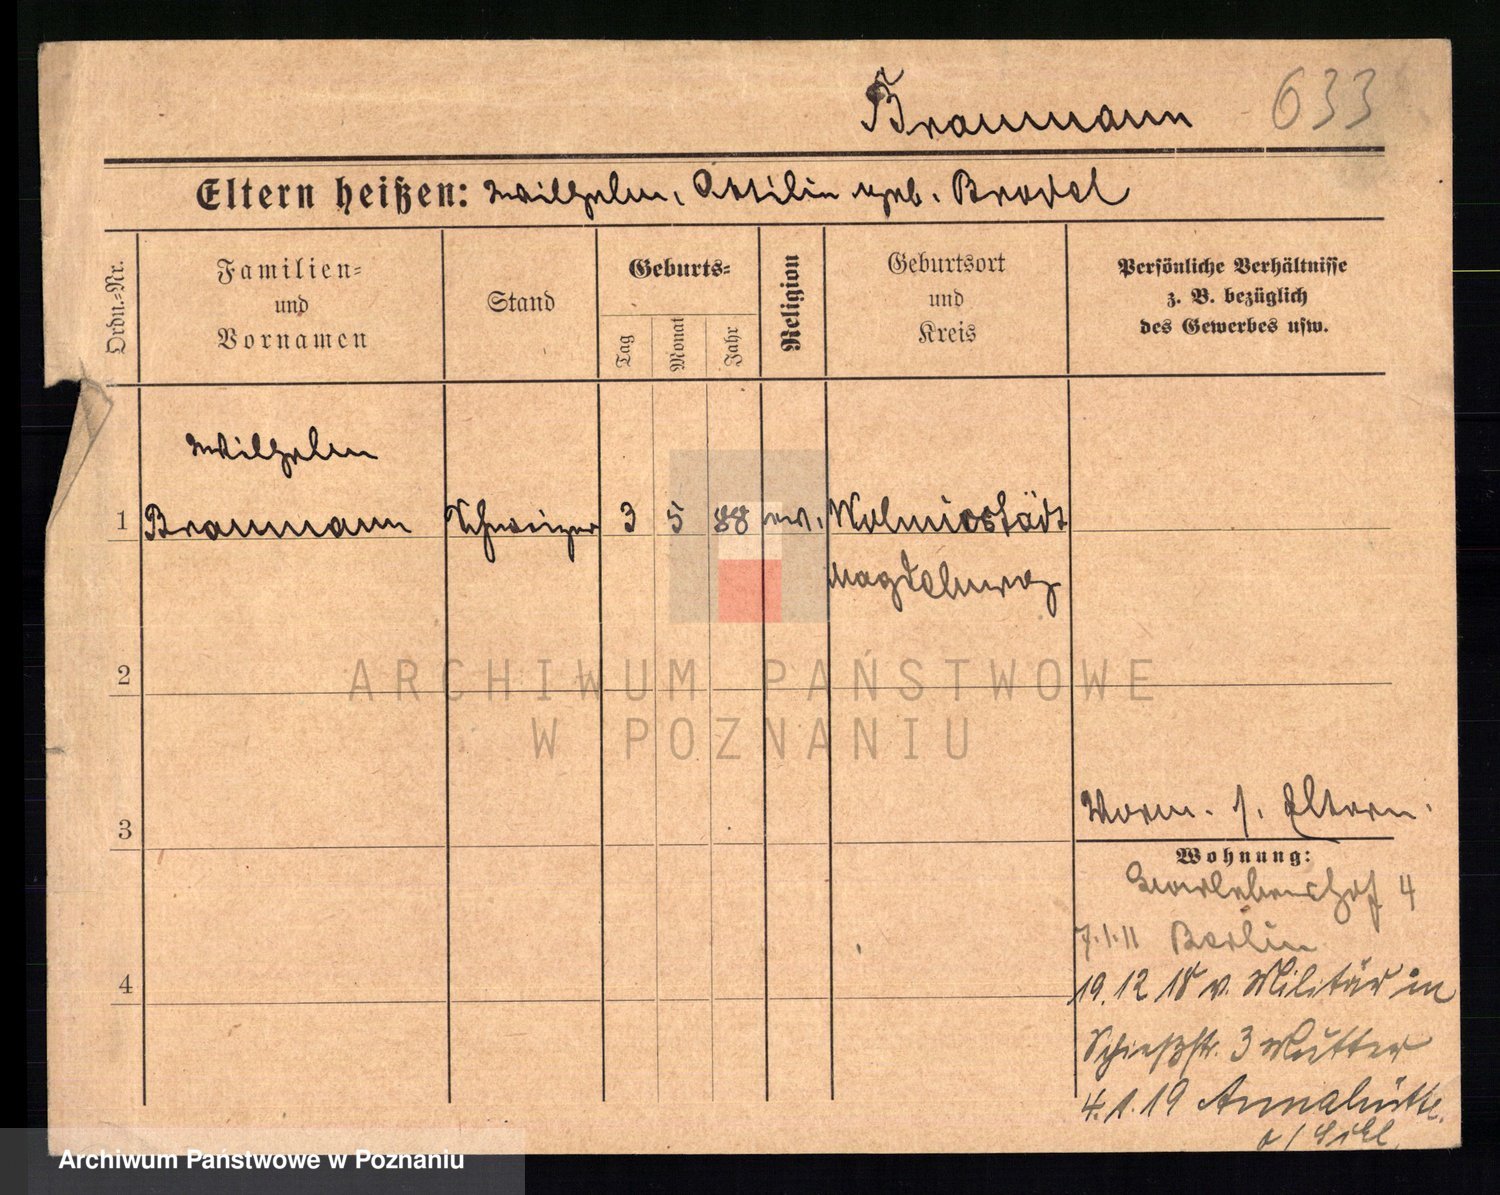 Braumann 633
Eltern heißen: Wilhelm, Ottilie geb. Brodel
Ordn.-Nr.
Familien-
und
Vornamen
Stand
Geburts-
Tag
Monat
Jahr
Religion
Geburtsort
und
Kreis
Persönliche Verhältnisse
z. B. bezüglich
des Gewerbes usw.
Wilhelm
1 Braumann Schweizer 3 5 88 ev. Wolmirstädt
Magdeburg
2
3
4
Vorm. s. Eltern.
Wohnung:
4
7.1.11 Berlin
19.12 18 v. Militär in
Schießstr. 3 Mutter
4.1.19 Annahütte
ARCHIWUM PAŃSTWOWE
W POZNANIU
Archiwum Państwowe w Poznaniu